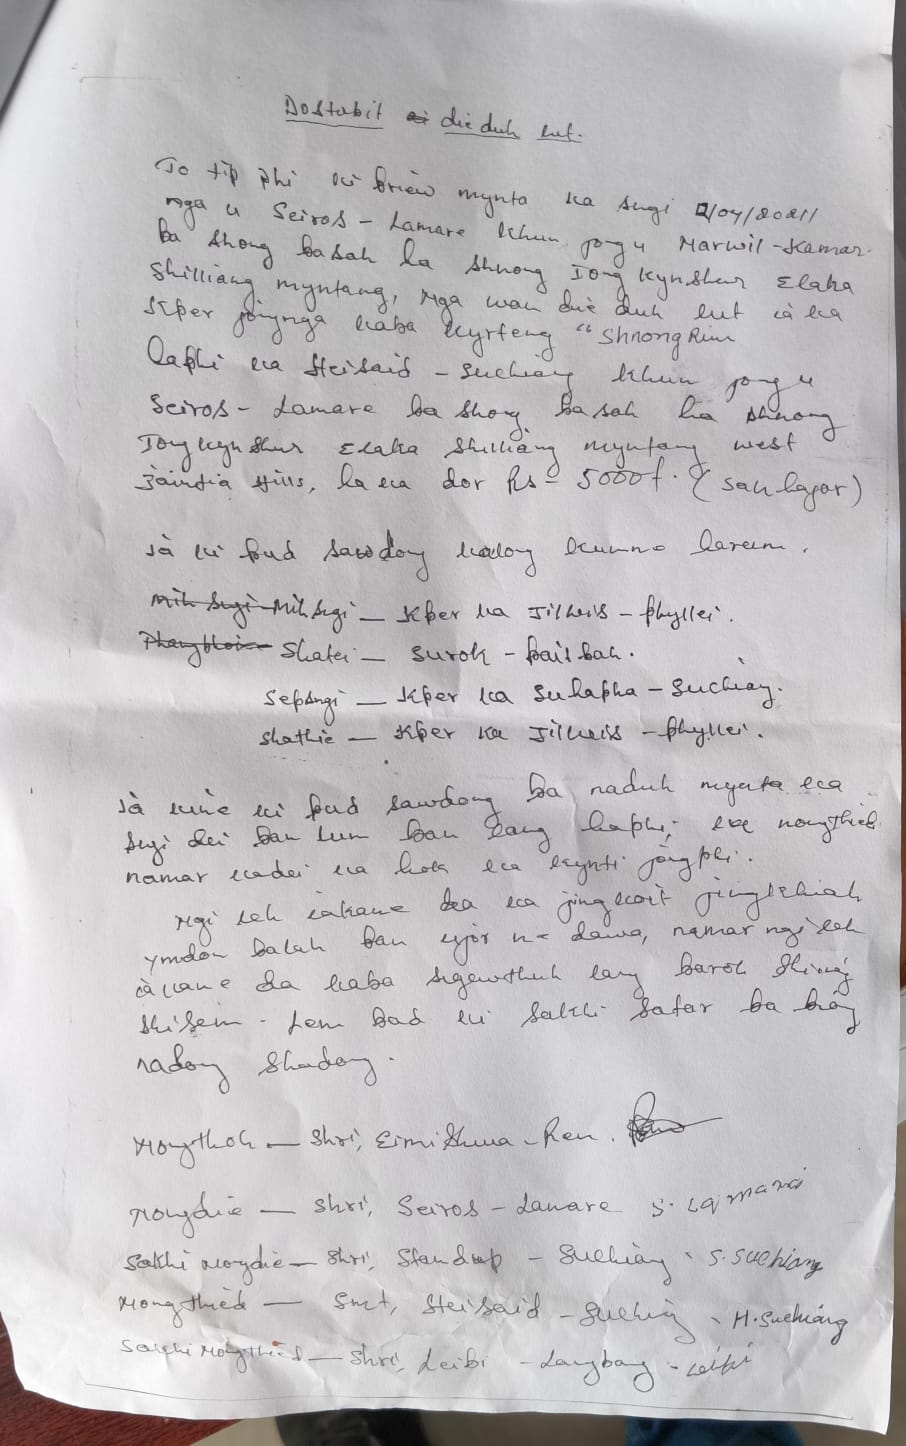 Dostabit die duh lut.
To tip phi ki briew mynta ka sngi /04/2021
nga u Seiros - Lamare khun jong u Marwil - Kamar.
ba shong basah ha shnong Iongkynshur Elaka
Shilliang myntang, nga wan die duh lut ia ka
kper jongnga kaba kyrteng "Shnong Rim
haphi ka Heisaid - Suchiang khun jong u
Seiros - Lamare ba shong basah ha shnong
Iongkynshur Elaka Shilliang myntang west
Jaintia Hills, ha ka dor Rs - 5000/- (san hajar)
ia ki pud sawdong kalong kumne harum.
Mih sngi - Kper ka Jilheis - phyllei.
Shatei - Surok - paitbah.
Sepsngi - Kper ka Suhapha - Suchiang.
Shathie - Kper ka Jilheis - phyllei.
ia kine ki pud sawdong ba naduh mynta ka
sngi dei ban lum ban lang haphi, ka nongthied
namar kadei ka hok ka kynti jongphi.
Ngi leh iakane da ka jingkoit jingkhiah
ymdon balah ban ujor ne dawa, namar ngi leh
iakane da kaba sngewthuh lang baroh shiliang
shisem. Lem bad ki sakhi safar ba biang
nadong shadong.
Nongthoh - Shri, Eimi Shwa - Ren.
Nongdie - Shri, Seiros - Lamare S. Lamare
Sakhi nongdie - Shri, Standup - Suchiang - S. Suchiang
Nongthied - Smt, Heisaid - Suchiang - H. Suchiang
Sakhi Nongthied - Shri, Leibi - Langbang - Leibi